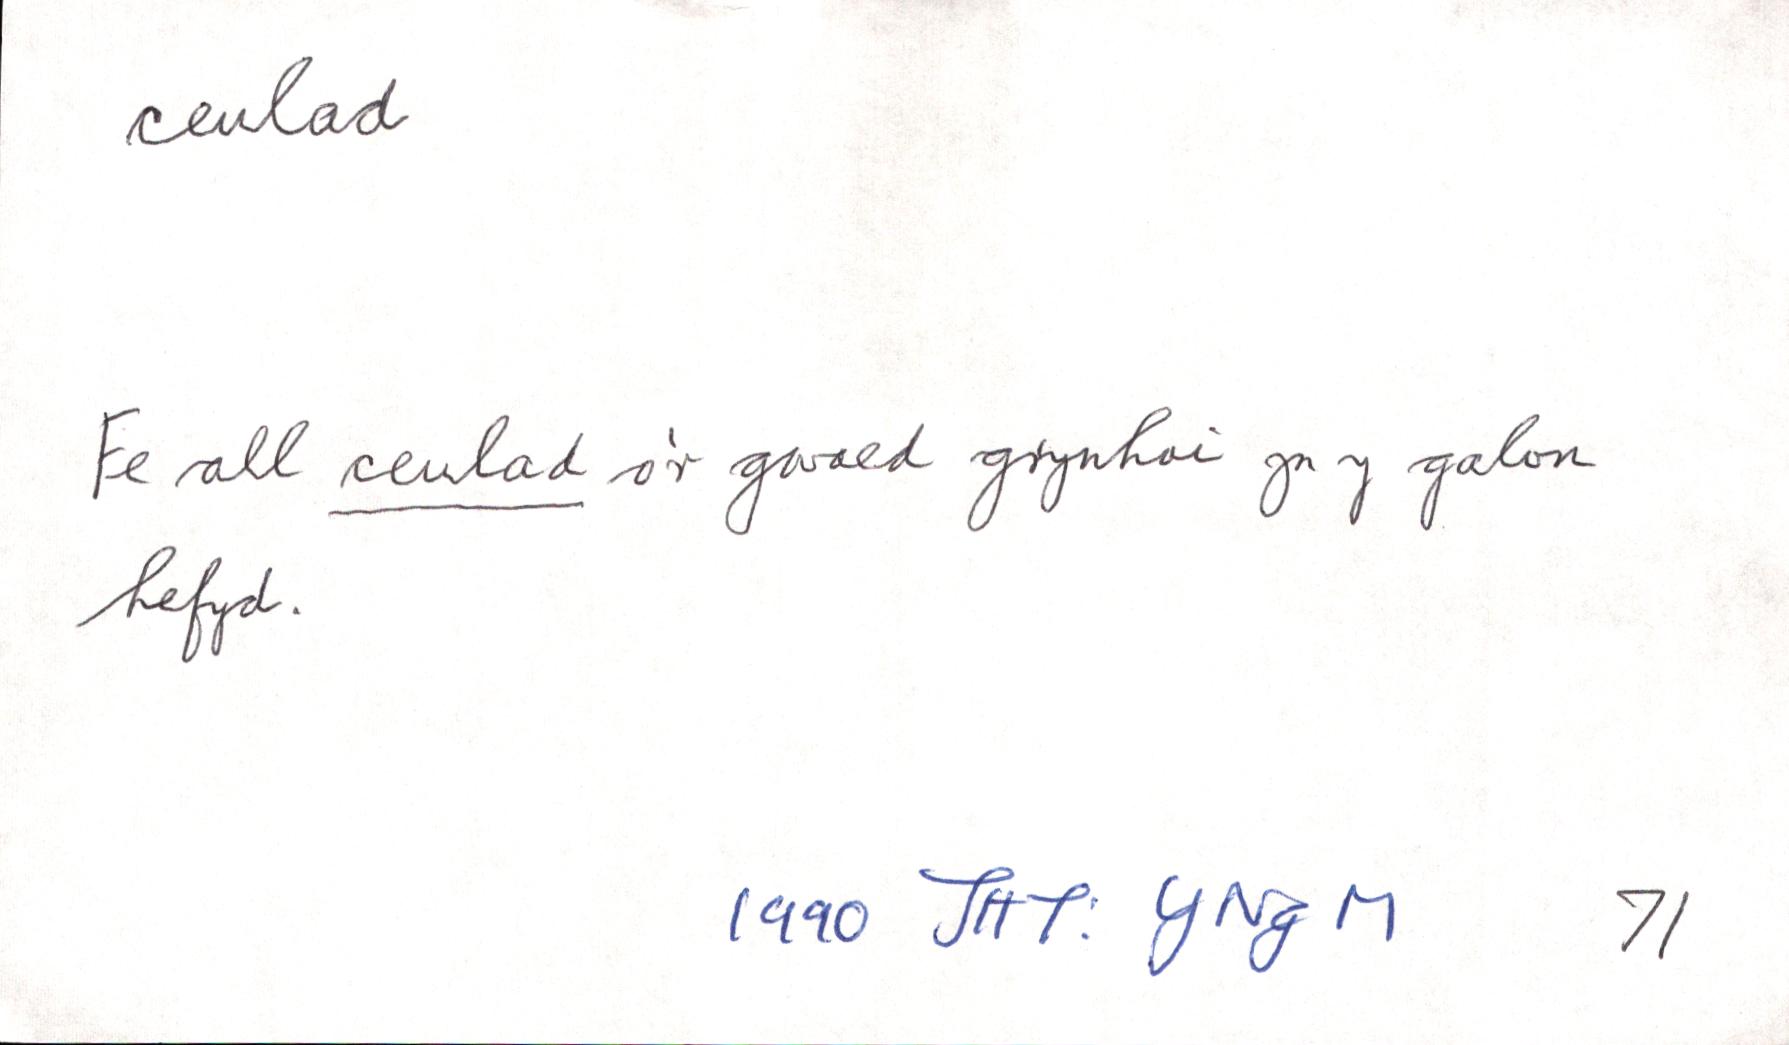 ceulad
Fe all ceulad o'r gwaed grynhoi yn y galon
hefyd.
1990 JHT: YNgM 71